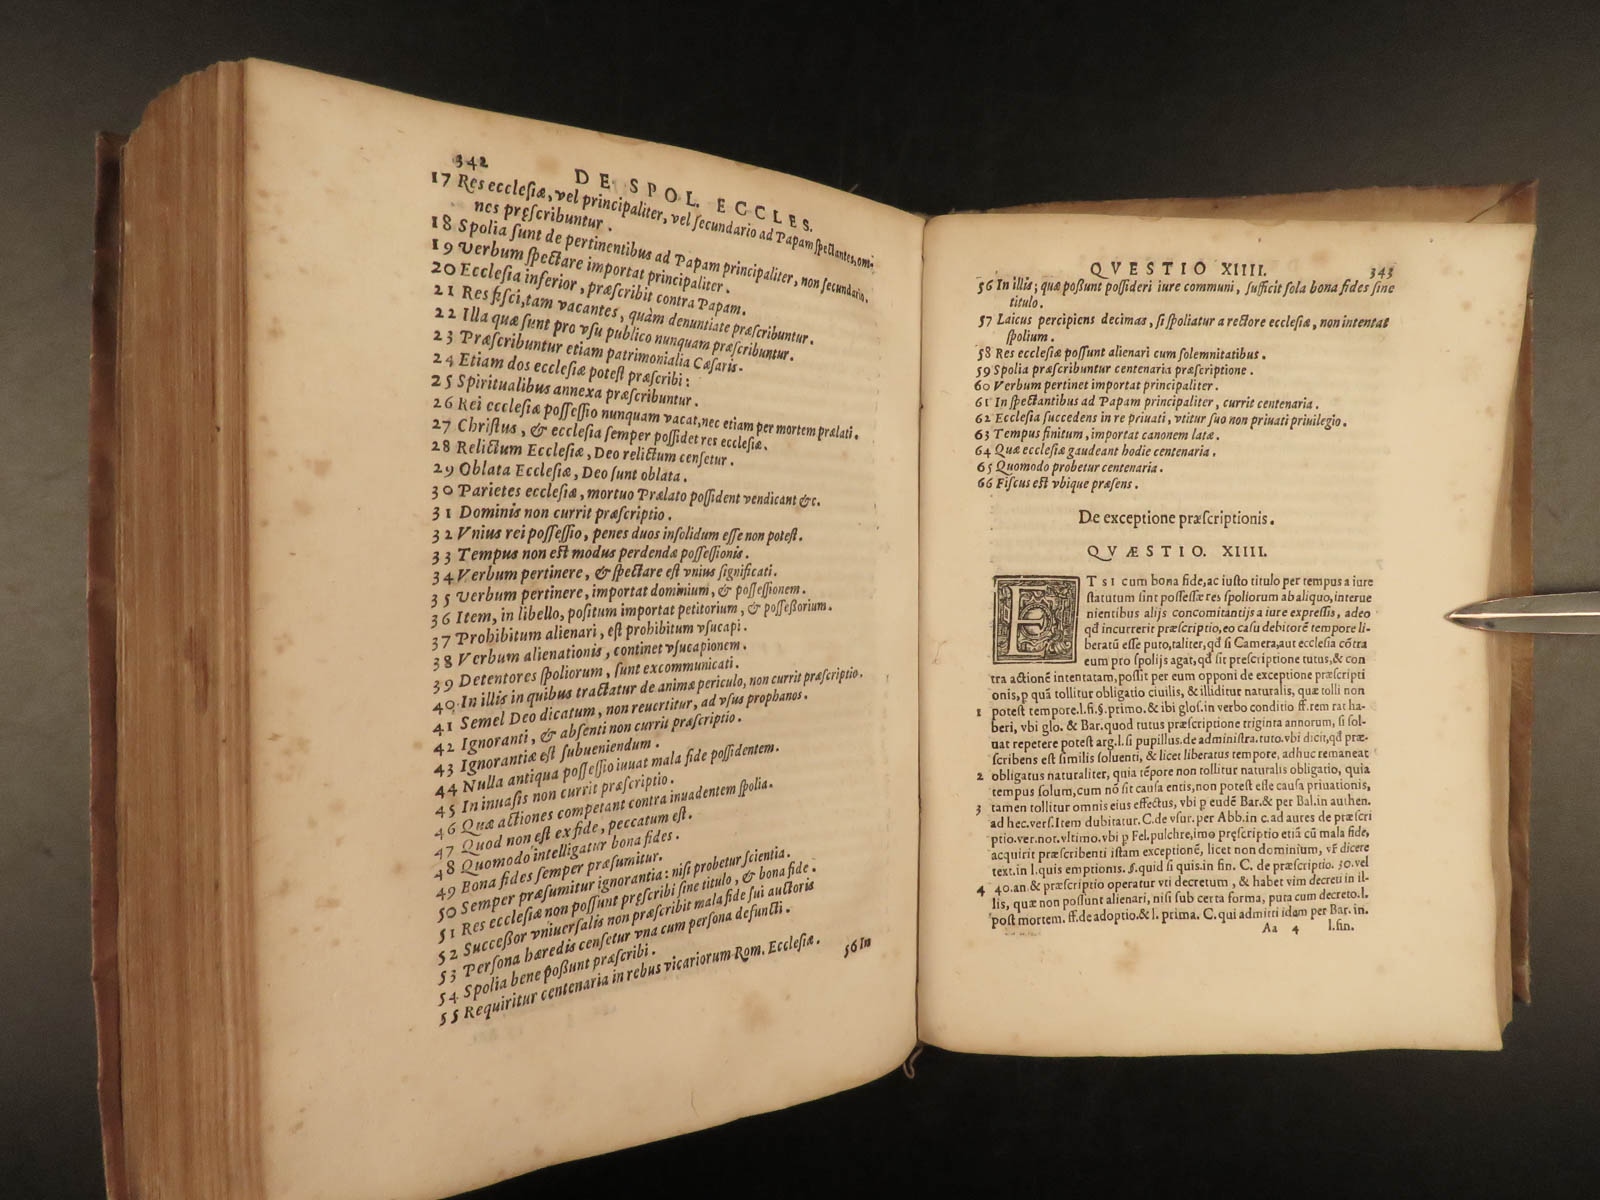 342
DE SPOL. ECCLES.
17 Res ecclesiæ, vel principaliter, vel secundario ad Papam spectantes, om-
nes pręscribuntur.
18 Spolia sunt de pertinentibus ad Papam principaliter, non secundario.
19 Verbum spectare importat principaliter.
20 Ecclesia inferior, præscribit contra Papam.
21 Res fisci, tam vacantes, quàm denuntiate præscribuntur.
22 Illa quæ sunt pro vsu publico nunquam præscribuntur.
23 Præscribuntur etiam patrimonialia Cæsaris.
24 Etiam dos ecclesiæ potest præscribi:
25 Spiritualibus annexa præscribuntur.
26 Rei ecclesiæ possessio nunquam vacat, nec etiam per mortem prælati.
27 Christus, & ecclesia semper possidet res ecclesiæ.
28 Relictum Ecclesiæ, Deo relictum censetur.
29 Oblata Ecclesiæ, Deo sunt oblata.
30 Parietes ecclesiæ, mortuo Prælato possident vendicant &c.
31 Dominis non currit præscriptio.
32 Vnius rei possessio, penes duos insolidum esse non potest.
33 Tempus non est modus perdendæ possessionis.
34 Verbum pertinere, & spectare est vnius significati.
35 Verbum pertinere, importat dominium, & possessionem.
36 Item, in libello, positum importat petitorium, & possessorium.
37 Prohibitum alienari, est prohibitum vsucapi.
38 Verbum alienationis, continet vsucapionem.
39 Detentores spoliorum, sunt excommunicati.
40 In illis in quibus tractatur de animæ periculo, non currit præscriptio.
41 Semel Deo dicatum, non reuertitur, ad vsus prophanos.
42 Ignoranti, & absenti non currit præscriptio.
43 Ignorantiæ est subueniendum.
44 Nulla antiqua possessio iuuat mala fide possidentem.
45 In inuasis non currit præscriptio.
46 Quæ actiones competant contra inuadentem spolia.
47 Quod non est ex fide, peccatum est.
48 Quomodo intelligatur bona fides.
49 Bona fides semper præsumitur.
50 Semper præsumitur ignorantia: nisi probetur scientia.
51 Res ecclesiæ non possunt pręscribi sine titulo, & bona fide.
52 Successor vniuersalis non præscribit mala fide sui auctoris
53 Persona hæredis censetur vna cum persona defuncti.
54 Spolia bene possunt præscribi.
55 Requiritur centenaria in rebus vicariorum Rom. Ecclesiæ.
56 In
QVESTIO XIIII. 343
56 In illis; quæ possunt possideri iure communi, sufficit sola bona fides sine
titulo.
57 Laicus percipiens decimas, si spoliatur a rectore ecclesiæ, non intentat
spolium.
58 Res ecclesiæ possunt alienari cum solemnitatibus.
59 Spolia præscribuntur centenaria præscriptione.
60 Verbum pertinet importat principaliter.
61 In spectantibus ad Papam principaliter, currit centenaria.
62 Ecclesia succedens in re priuati, vtitur suo non priuati priuilegio.
63 Tempus finitum, importat canonem latæ.
64 Quæ ecclesiæ gaudeant hodie centenaria.
65 Quomodo probetur centenaria.
66 Fiscus est vbique præsens.
De exceptione præscriptionis.
QVÆSTIO. XIIII.
ET SI cum bona fide, ac iusto titulo per tempus a iure
statutum sint possessæ res spoliorum ab aliquo, interue
nientibus alijs concomitantijs a iure expressis, adeo
qđ incurrerit præscriptio, eo casu debitorē tempore li-
beratū esse puto, taliter, qđ si Camera, aut ecclesia cōtra
eum pro spolijs agat, qđ sit prescriptione tutus, & con
tra actionē intentatam, possit per eum opponi de exceptione præscripti
onis, p quā tollitur obligatio ciuilis, & illiditur naturalis, quæ tolli non
1 potest tempore. l. fi. §. primo. & ibi glos. in verbo conditio ff. rem rat ha-
beri, vbi glo. & Bar. quod tutus præscriptione triginta annorum, si sol-
uat repetere potest arg. l. si pupillus. de administra. tuto. vbi dicit, qđ præ-
scribens est similis soluenti, & licet liberatus tempore, adhuc remaneat
2 obligatus naturaliter, quia tēpore non tollitur naturalis obligatio, quia
tempus solum, cum nō sit causa entis, non potest esse causa priuationis,
3 tamen tollitur omnis eius effectus, vbi p eundē Bar. & per Bal. in authen.
ad hec. vers. Item dubitatur. C. de vsur. per Abb. in c. ad aures de præscri
ptio. ver. not. vltimo. vbi p Fel. pulchre, imo pręscriptio etiā cū mala fide,
acquirit præscribenti istam exceptionē, licet non dominium, vt dicere
text. in l. quis emptionis. §. quid si quis. in fin. C. de præscriptio. 30. vel
4 40. an. & præscriptio operatur vti decretum, & habet vim decreti in il-
lis, quæ non possunt alienari, nisi sub certa forma, puta cum decreto. l.
post mortem. ff. de adoptio. & l. prima. C. qui admitti idam per Bar. in.
Aa 4 l. fin.